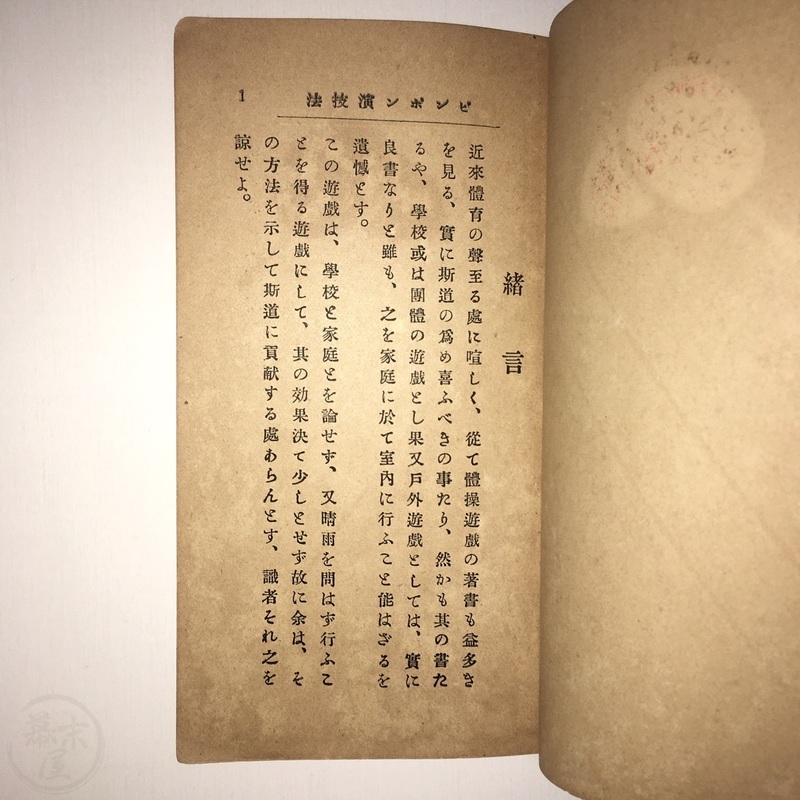 1
ピンポン演技法
緒言
近來體育の聲至る處に喧しく、從て體操遊戲の著書も益多き
を見る、實に斯道の爲め喜ふべきの事たり、然かも其の書た
るや、學校或は團體の遊戲とし果又戸外遊戲としては、實に
良書なりと雖も、之を家庭に於て室內に行ふこと能はざるを
遺憾とす。
この遊戲は、學校と家庭とを論せず、又晴雨を問はず行ふこ
とを得る遊戲にして、其の効果決て少しとせず故に余は、そ
の方法を示して斯道に貢献する處あらんとす、識者それ之を
諒せよ。
幕末屋